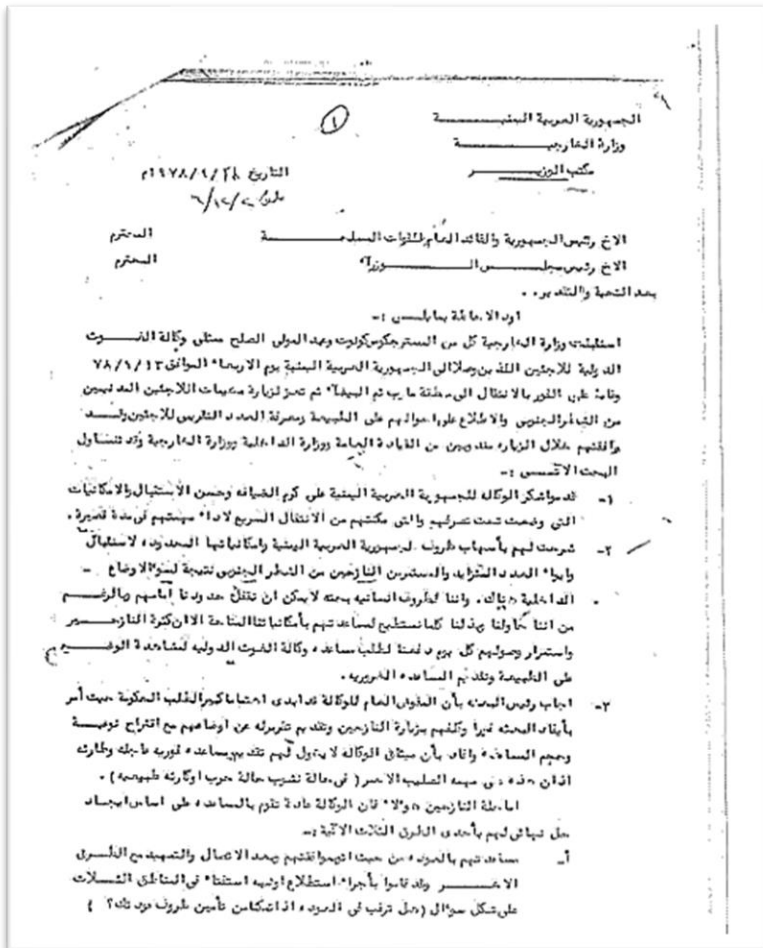 ١
الجمهورية العربية اليمنية
وزارة الخارجية
مكتب الوزير
التاريخ ١٩٧٨/٩/٢٨م
الاخ رئيس الجمهورية والقائد العام للقوات المسلحة المحترم
الاخ رئيس مجلس الوزراء المحترم
بعد التحية والتقدير ٠٠
اود الاحاطة بما يلي :-
استقبلت وزارة الخارجية كل من المستر وعبد المولى الصلح ممثلي وكالة الغوث
الدولية للاجئين اللذين وصلا الى الجمهورية العربية اليمنية يوم الاربعاء الموافق ٧٨/٩/١٣
وقاما على الفور بالانتقال الى منطقة مارب ثم البيضاء ثم تعز لزيارة مخيمات اللاجئين المدنيين
من الشطر الجنوبي والاطلاع على احوالهم على الطبيعة ومعرفة العدد التقريبي للاجئين وقد
رافقهم خلال الزياره مندوبين من القيادة العامة ووزارة الداخلية ووزارة الخارجية وقد تناول
البحث الاتي :-
١- قدموا شكر الوكاله للجمهورية العربية اليمنية على كرم الضيافه وحسن الاستقبال والامكانيات
التي وضعت تحت تصرفهم والتي مكنتهم من الانتقال السريع لاداء مهمتهم في مدة قصيرة ٠
٢- شرحت لهم بأسهاب ظروف الجمهورية العربية اليمنية وامكانياتها المحدوده لاستقبال
وايواء العدد المتزايد والمستمر من النازحين من الشطر الجنوبي نتيجة لسوء الاوضاع
الداخلية هناك ٠ واننا لظروف انسانيه بحته لا يمكن ان نقفل حدودنا امامهم وبالرغم
من اننا حاولنا وبذلنا كلما نستطيع لمساعدتهم بأمكانياتنا المتاحة الا ان كثرة النازحين
واستمرار وصولهم كل يوم دفعنا لطلب مساعده وكالة الغوث الدوليه لمشاهدة الوضع
على الطبيعة وتقديم المساعده الضروريه ٠
٣- اجاب رئيس البعثه بأن المفوض العام للوكالة قد ابدى اهتماما كبيرا لطلب الحكومة حيث أمر
بأيفاد البعثه فورا وكلفهم بزيارة النازحين وتقديم تقرير له عن اوضاعهم مع اقتراح نوعية
وحجم المساعده وافاد بأن ميثاق الوكاله لا يخول لهم تقديم مساعده فوريه عاجله وطارئه
اذ ان هذه هي مهمه الصليب الاحمر ( في حالة نشوب حالة حرب او كارثه طبيعيه ) ٠
اما حالة النازحين هؤلاء فان الوكالة عادة تقوم بالمساعده على اساس ايجاد
حل نهائي لهم بأحدى الطرق الثلاث الاتية :-
أ- مساعدتهم بالعوده من حيث اتوا بموافقتهم وبعد الاتصال والتمهيد مع الطرف
الاخر وقد قاموا بأجراء استطلاع اوليه استفتاء في المناطق الثلاث
على شكل سؤال (هل ترغب في العوده اذا تمكنا من تأمين ظروف عودتك؟ )